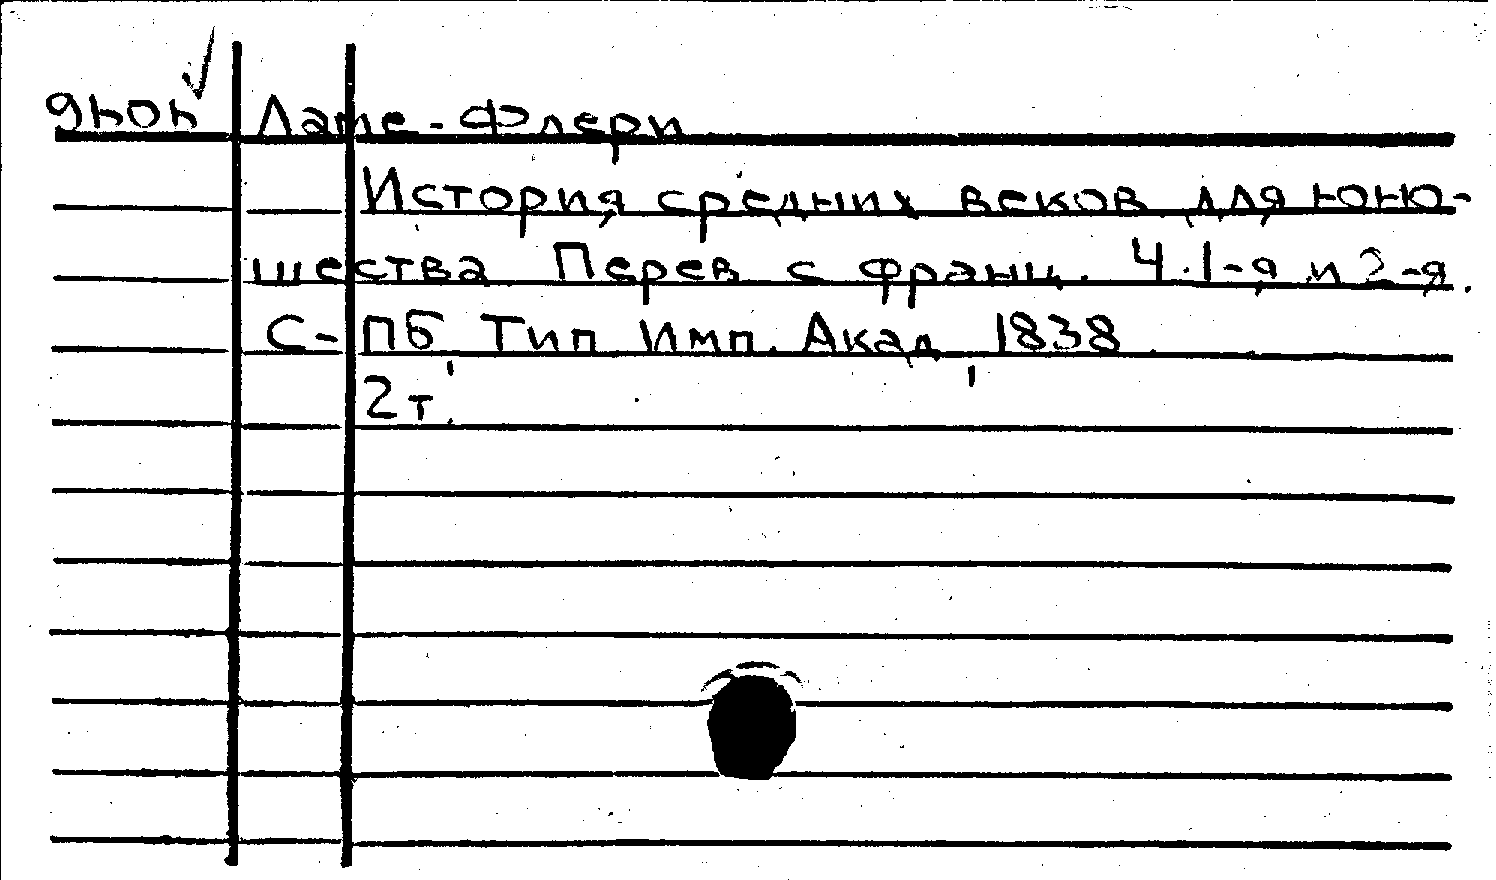 Ламе-Флери
История средних веков для юно-
шества Перев с франц. Ч.1-я и 2-я.
С-ПБ, Тип Имп. Акад, 1838
2 т.